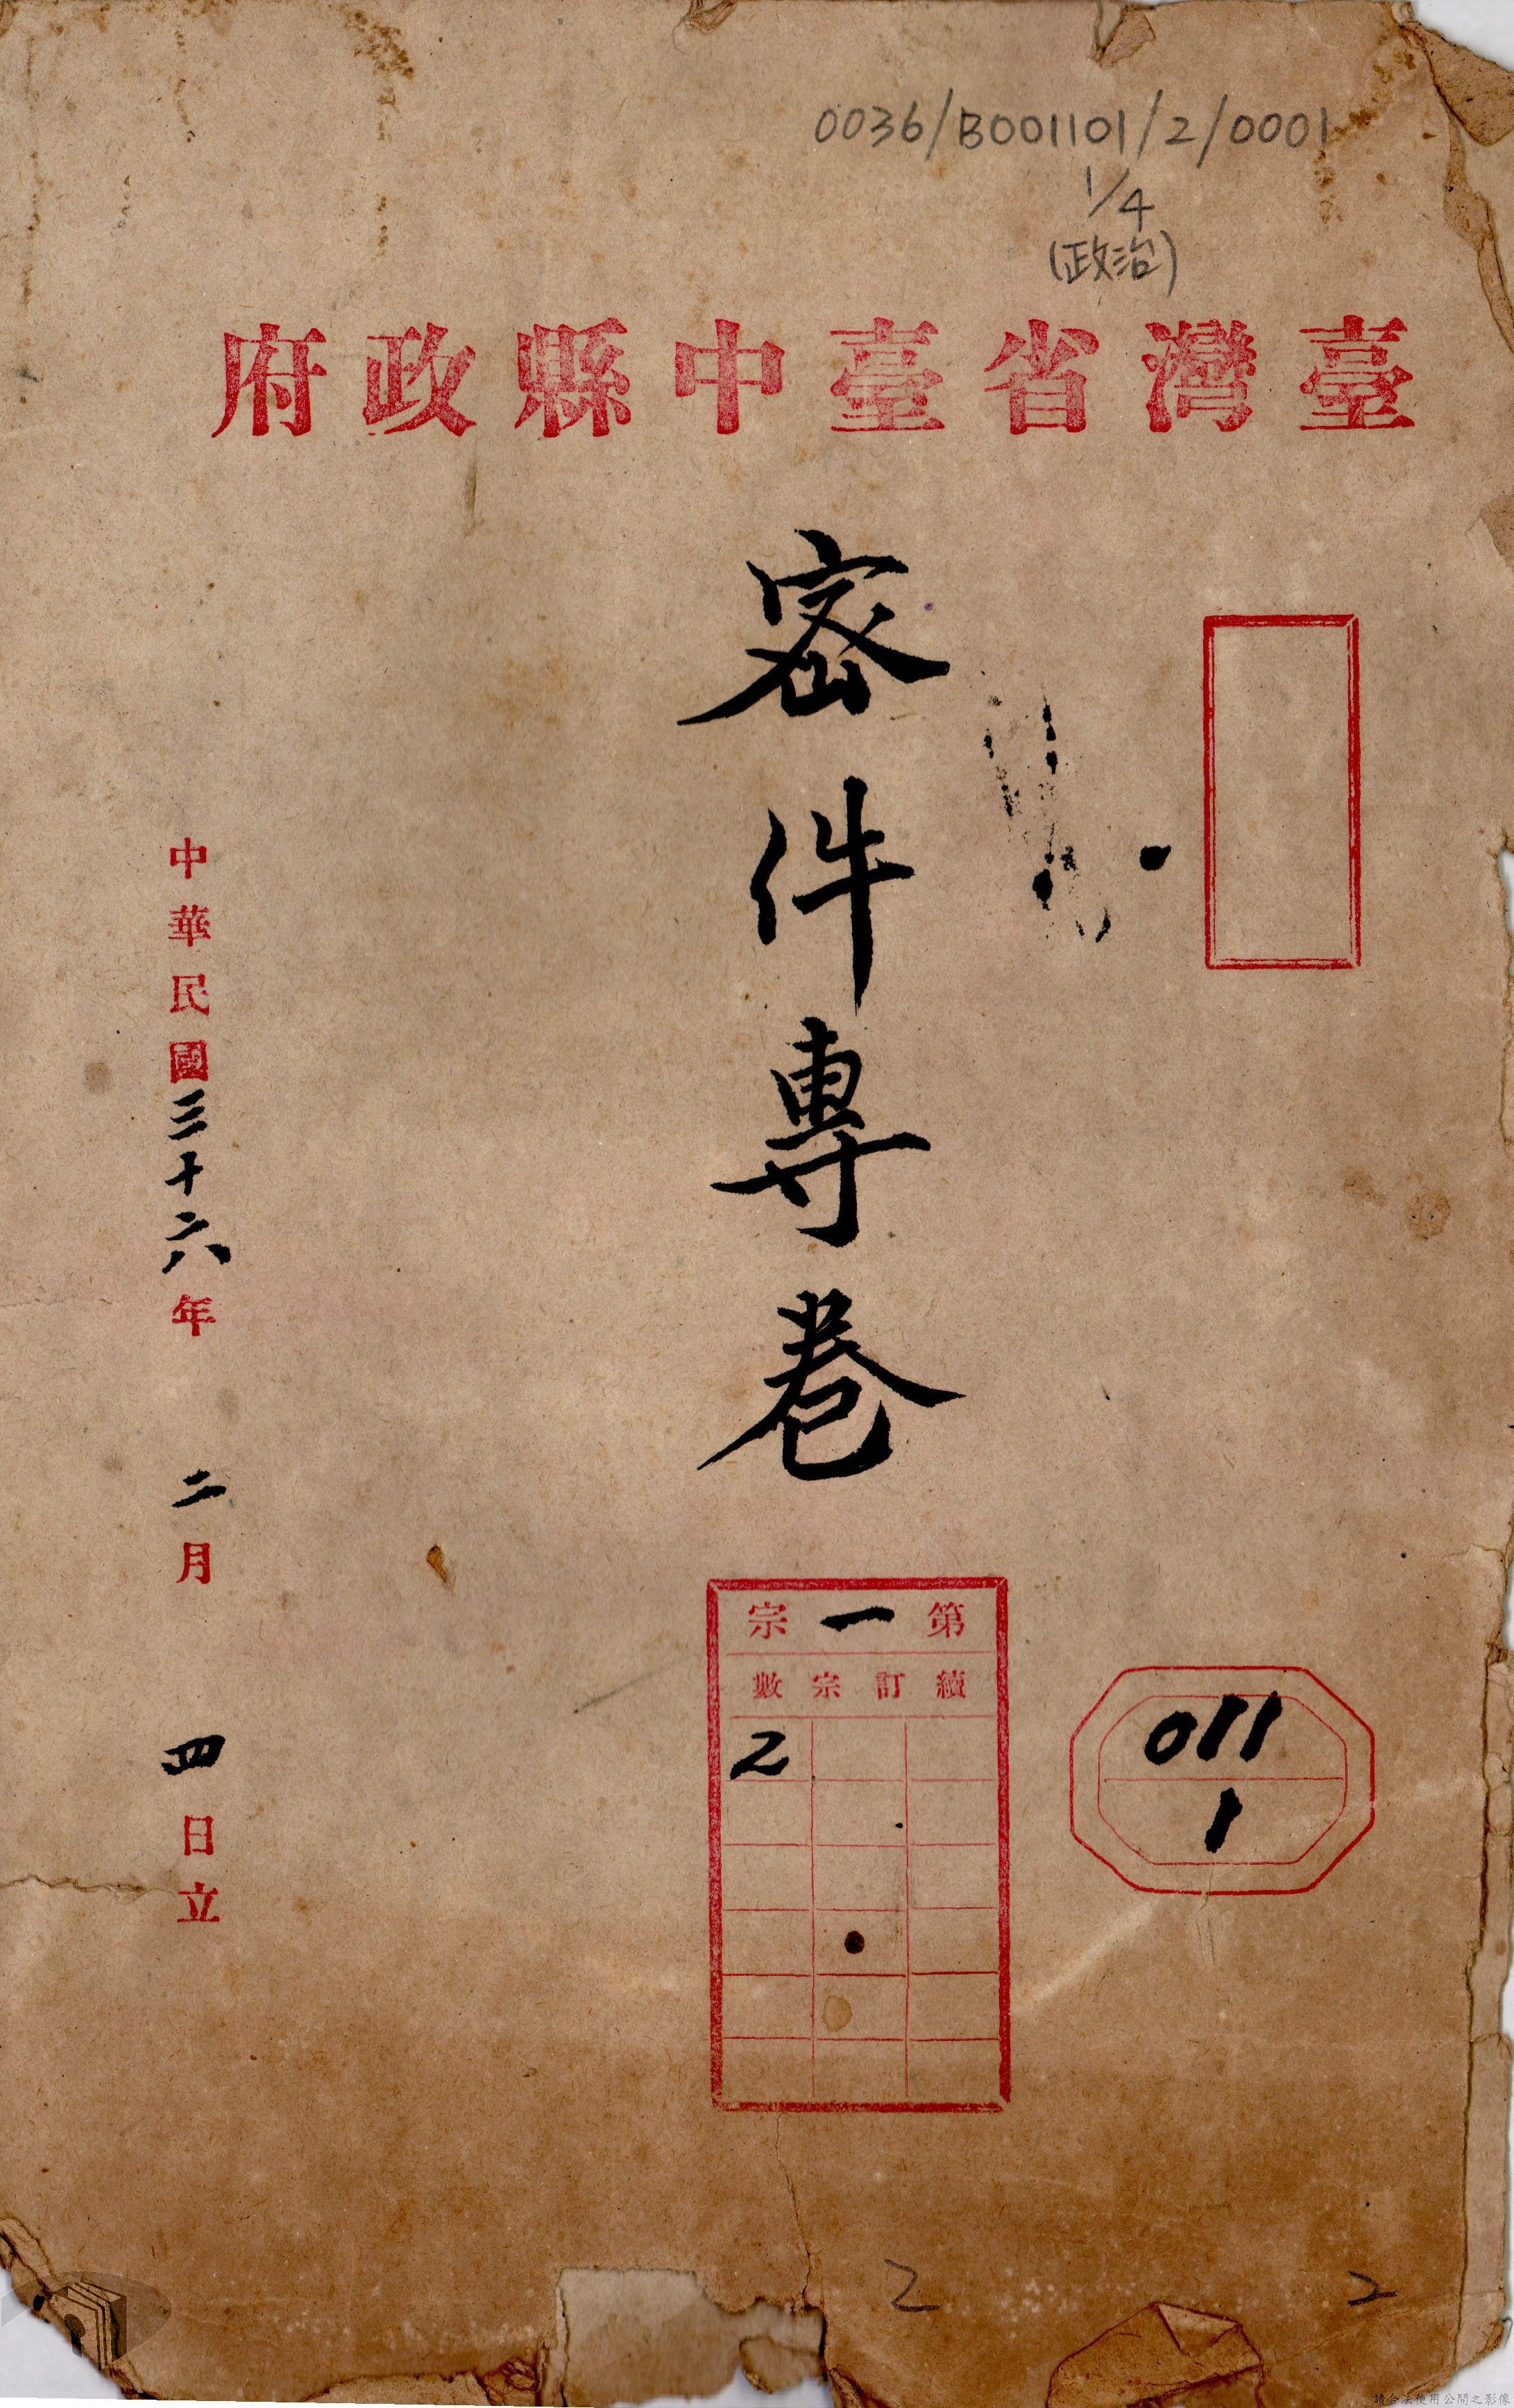 0036/B001101/2/0001
1/4
(政治)
臺灣省臺中縣政府
密件專卷
第一宗
續訂宗數
2
011
1
中華民國三十六年二月四日立
2
2
請合法使用公開之影像